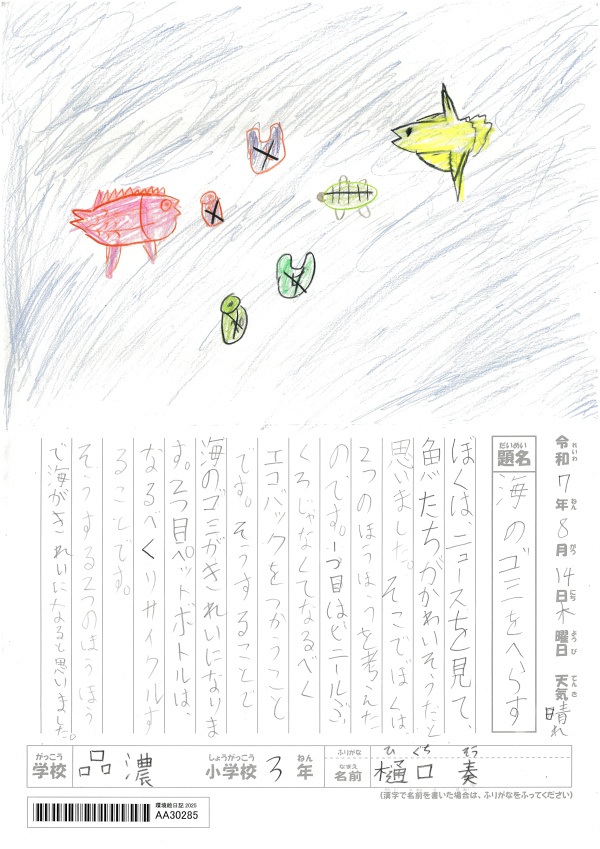 令和7年8月14日木曜日 天気晴れ
れいわ ねん がつ にち ようび てんき
だいめい
題名
海のゴミをへらす
ぼくは、ニュースを見て、
魚たちがかわいそうだと
思いました。そこでぼくは、
2つのほうほうを考えた
のです。1つ目はビニールぶ
くろじゃなくてなるべく
エコバックをつかうこと
です。そうすることで
海のゴミがきれいになりま
す。2つ目ペットボトルは、
なるべくリサイクルす
ることです。
そうする2つのほうほう
で海がきれいになると思いました。
がっこう
学校
品濃
しょうがっこう
小学校
3
ねん
年
ふりがな
ひぐち そう
なまえ
名前
樋口 奏
(漢字で名前を書いた場合は、ふりがなをふってください)
環境絵日記 2025
AA30285